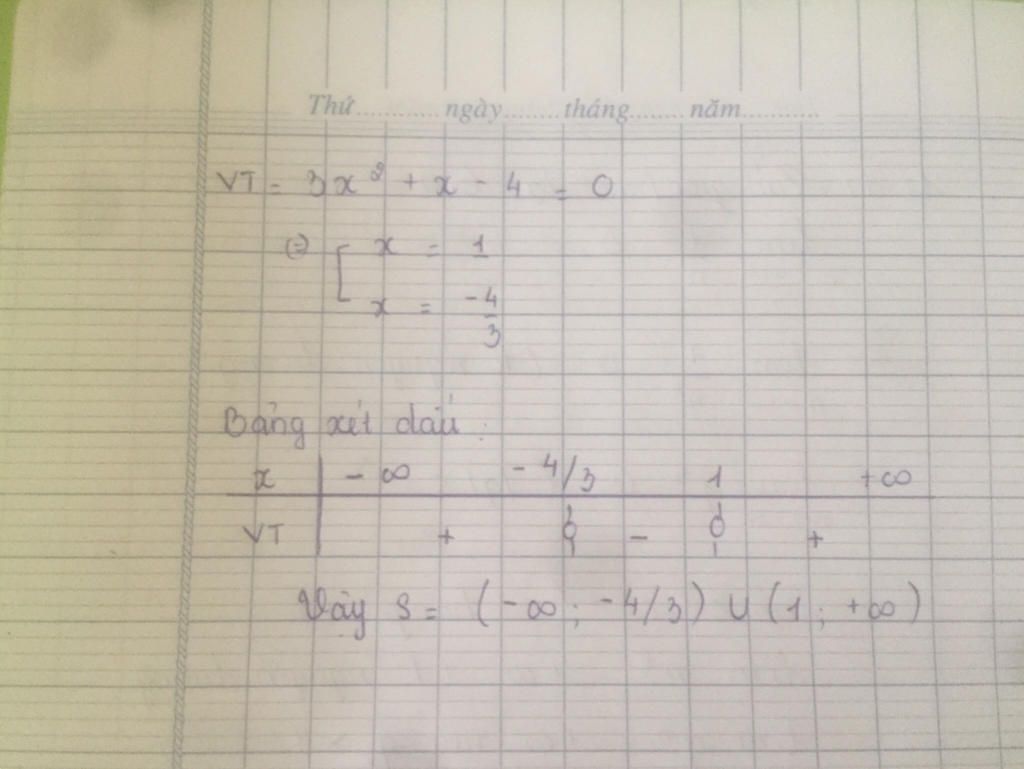 Thứ............ngày........tháng........năm............
VT = 3x² + x - 4 = 0
⇔ [ x = 1
x = -4/3
Bảng xét dấu :
x | -∞ -4/3 1 +∞
VT | + 0 - 0 +
Vậy S = (-∞ ; -4/3) ∪ (1 ; +∞)